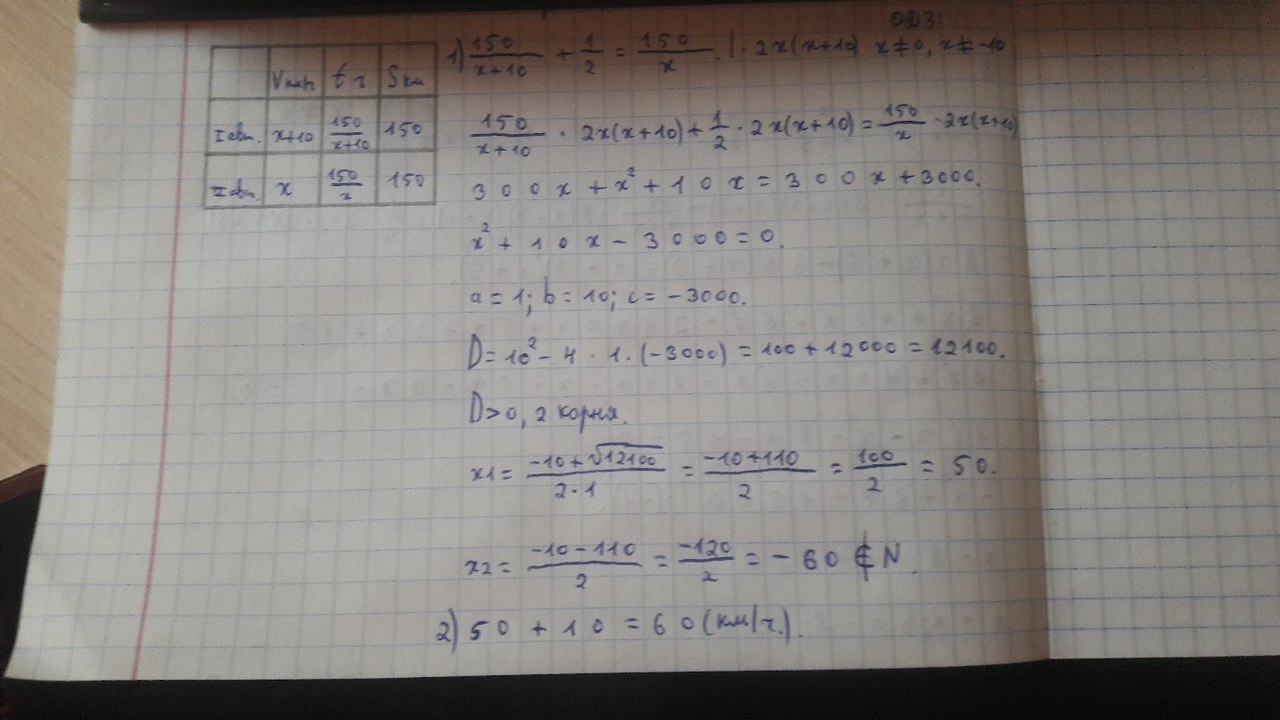 ОДЗ:
V км/ч t ч S км
I авт. x+10 150/(x+10) 150
II авт. x 150/x 150
1) 150/(x+10) + 1/2 = 150/x | · 2x(x+10) x≠0, x≠-10
150/(x+10) · 2x(x+10) + 1/2 · 2x(x+10) = 150/x · 2x(x+10)
300x + x² + 10x = 300x + 3000.
x² + 10x - 3000 = 0.
a = 1; b = 10; c = -3000.
D = 10² - 4 · 1 · (-3000) = 100 + 12000 = 12100.
D > 0, 2 корня.
x1 = (-10 + √12100)/(2·1) = (-10+110)/2 = 100/2 = 50.
x2 = (-10 - 110)/2 = -120/2 = -60 ∉ N.
2) 50 + 10 = 60 (км/ч.).